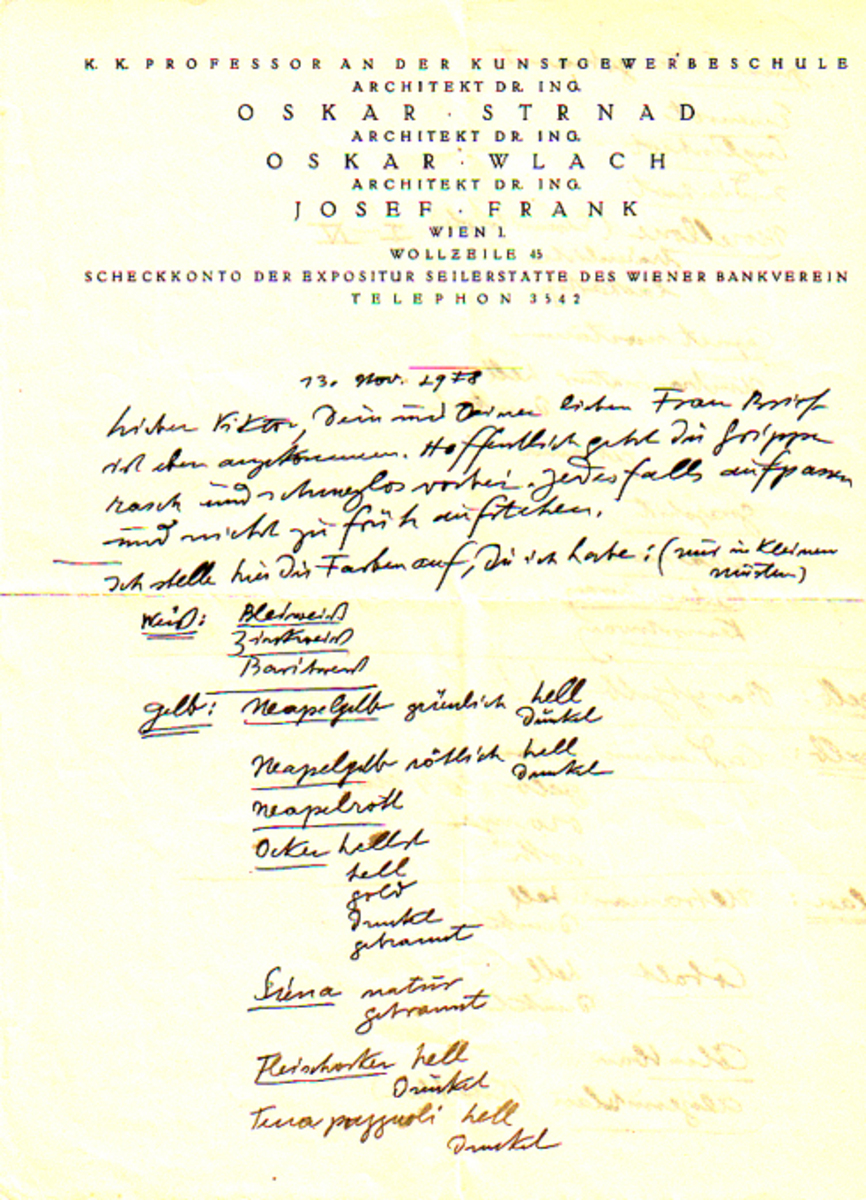 K. K. PROFESSOR AN DER KUNSTGEWERBESCHULE
ARCHITEKT DR. ING.
OSKAR · STRNAD
ARCHITEKT DR. ING.
OSKAR · WLACH
ARCHITEKT DR. ING.
JOSEF · FRANK
WIEN I.
WOLLZEILE 45
SCHECKKONTO DER EXPOSITUR SEILERSTATTE DES WIENER BANKVEREIN
TELEPHON 3542
13. Nov. 1918
Lieber Viktor, Dein und Deiner lieben Frau Brief
ist eben angekommen. Hoffentlich geht die Grippe
rasch und schmerzlos vorbei. Jedesfalls aufpassen
und nicht zu früh aufstehen.
Ich stelle hier die Farben auf, die ich habe: (nur in kleinen
Weiß: Bleiweiß
Zinkweiß
Baritweiß
gelb: Neapelgelb grünlich hell
Dunkel
Neapelgelb rötlich hell
Dunkel
Neapelroth
Ocker hellst
hell
gold
Dunkel
gebrannt
Siena natur
gebrannt
Fleischocker hell
Dunkel
Terra pozzuoli hell
Dunkel